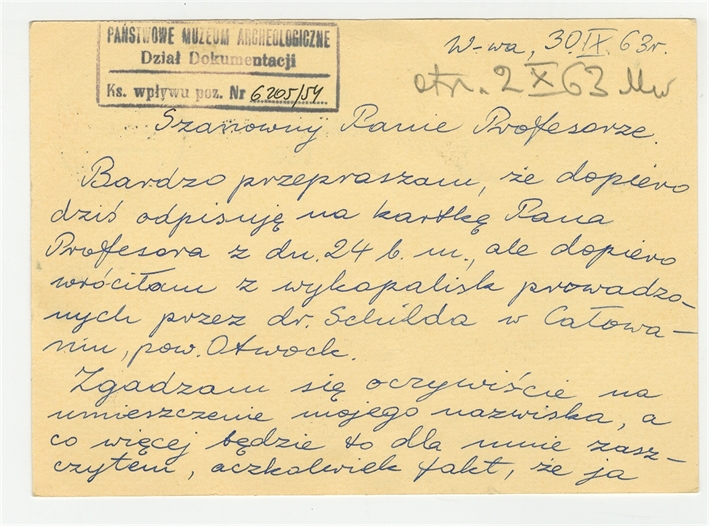 PAŃSTWOWE MUZEUM ARCHEOLOGICZNE
Dział Dokumentacji
Ks. wpływu poz. Nr 6205/54
W-wa, 30.IX.63r.
otr. 2 X 63 Mw
Szanowny Panie Profesorze.
Bardzo przepraszam, że dopiero
dziś odpisuję na kartkę Pana
Profesora z dn. 24 b.m., ale dopiero
wróciłam z wykopalisk prowadzo-
nych przez dr. Schilda w Całowa-
niu, pow. Otwock.
Zgadzam się oczywiście na
umieszczenie mojego nazwiska, a
co więcej będzie to dla mnie zasz-
czytem, aczkolwiek fakt, że ja